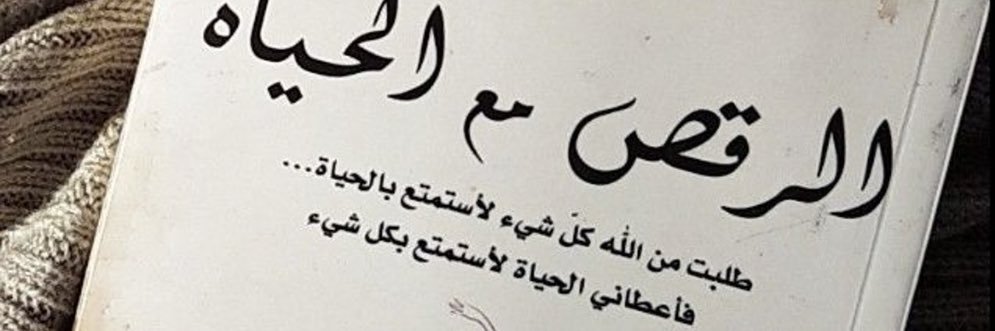 الرقص مع الحياة
طلبت من الله كلّ شيء لأستمتع بالحياة...
فأعطاني الحياة لأستمتع بكل شيء